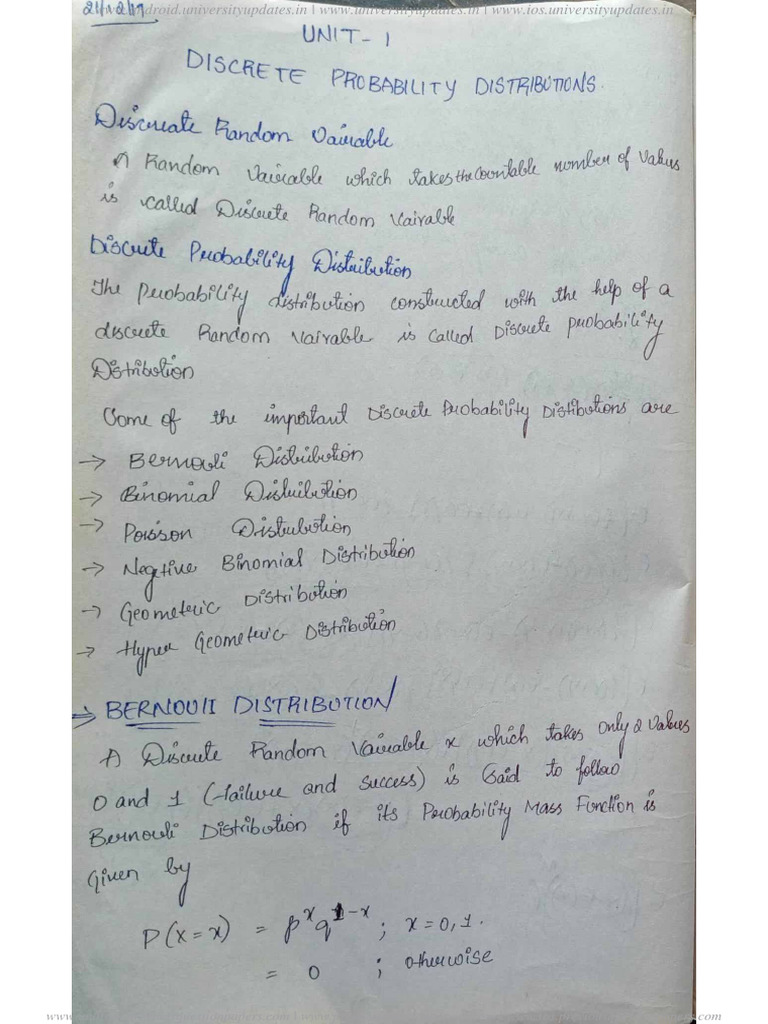 droid.universityupdates.in | www.universityupdates.in | www.ios.universityupdates.in
UNIT-1
DISCRETE PROBABILITY DISTRIBUTIONS.
Discreate Random Vairable
A Random Vairable which takes the Countable number of Values
is called Discrete Random Vairable
Discrete Probability Distribution
The probability distribution constructed with the help of a
discrete Random Vairable is called Discrete probability
Distribution
Some of the important Discrete Probability Distibutions are
→ Bernouli Distribution
→ Binomial Distribution
→ Poisson Distribution
→ Negtive Binomial Distribution
→ Geometric Distribution
→ Hyper Geometric Distribution
⇒ BERNOULI DISTRIBUTION
A Discrete Random Vairable x which takes only 2 Values
0 and 1 (failure and success) is Said to follow
Bernouli Distribution if its Probability Mass Function is
Given by
P(X=x) = p^x q^1-x ; x=0,1.
= 0 ; otherwise